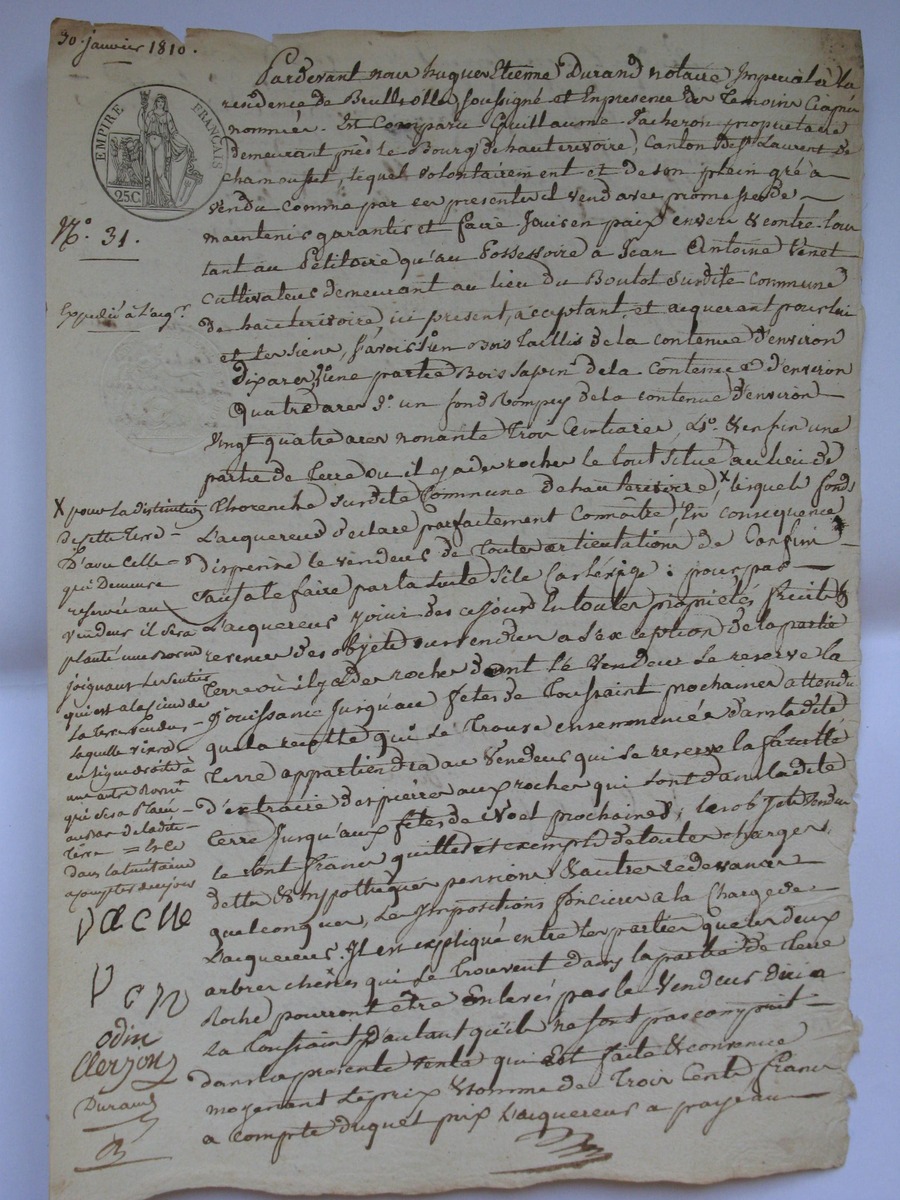 30. janvier 1810.
EMPIRE FRANÇAIS
25C
N.° 31.
Expedié à l'aqr.
Pardevant nous hugues Etienne Durand notaire Imperial à la
residence de Brullolles soussigné et En presence des Temoins Ciaprès
nommés. Est Comparu Guillaume Pacheron propriétaire
demeurant près le Bourg de hauterivoire, Canton de St Laurent de
chamousset, lequel volontairement et de son plein gré a
vendu comme par ces presentes il vend avec promesse de
maintenir garantir et faire Jouir en paix envers & contre tous
tant au Pétitoire qu'au Possessoire à Jean Antoine Venet
Cultivateur demeurant au lieu du Boulot Susdite commune
de hauterivoire, ici present, acceptant, et acquerant pour lui
et les siens, Savoir 1° un Bois Taillis de la contenue d'environ
dix ares, 2° une partie Bois Sapin de la Contenue d'environ
Quatre ares 3° un fond Rompey de la contenue d'environ
Vingt quatre ares nonante Trois Centiares, 4°. & enfin une
partie de Terre ou il y a des rocher le tout Situé au lieu de
Thorenche Susdite Commune de hauterivoire, x lesquels fonds
L'acquereur declare parfaitement Connoître, En consequence
dispense le vendeur de Toutes artientations de Confins
Sauf à le faire par la suite Si le Cas l'exige : pour par
L'acquereur Jouir dès ce jour En toutes propriétés fruits &
revenus des objets survendus a l'exception de la partie
Terre où il y a des rocher dont le Vendeur Se reserve la
Jouissance Jusqu'aux fêtes de Toussaint prochaines attendu
que la recolte qui se Trouve ensemencée dans ladite
Terre appartiendra au Vendeur qui se reserve la faculté
d'extraire des pierres aux rocher qui sont dans ladite
terre Jusqu'aux fêtes de Noel prochaines ; les objets Vendus
le sont francs quittes et exempts de toutes charges
dettes & hypotheques pensions & autres redevances
quelconques, les Impositions foncieres a la Charge de
L'acquereur. Il est expliqué entre les parties que les deux
arbres chênes qui se trouvent dans la partie de Terre
Roche pourront être Enlevés par le Vendeur dici a
La Toussaint d'autant qu'ils ne sont pas compris
dans la presente vente qui Est faite & convenue
moyenant Le prix & somme de Trois Cents francs
a compte duquel prix L'acquereur a payé au
x pour la distinction
de cette Terre
D'avec Celle
qui Demeure
reservée au
Vendeur il sera
planté une borne
joignant le Sentier
qui est a la cime de
la Terre vendue
laquelle visera
en ligne droite à
une autre Borne
qui sera Placée
au bas de ladite
Terre =
dans la huitaine
a compter de ce jour
odin
Clerjon
Durand